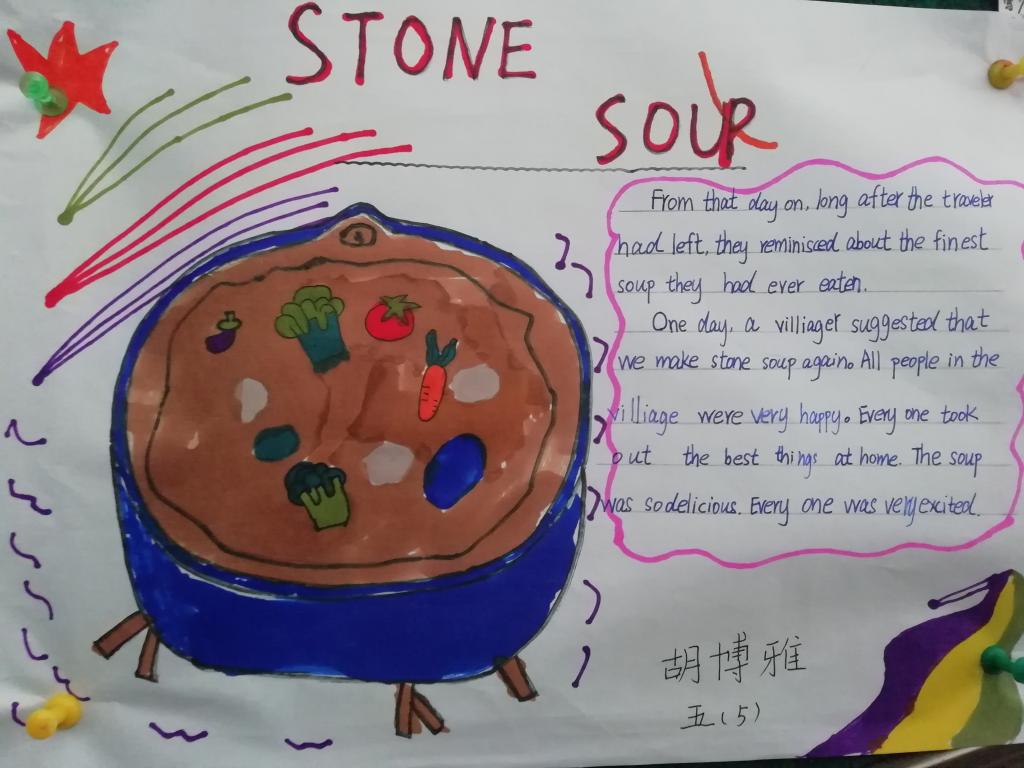 STONE
SOUP
From that day on, long after the traveler
had left, they reminisced about the finest
soup they had ever eaten.
One day, a villiager suggested that
we make stone soup again。All people in the
villiage were very happy。Every one took
out the best things at home. The soup
was so delicious. Every one was very excited.
胡博雅
五(5)